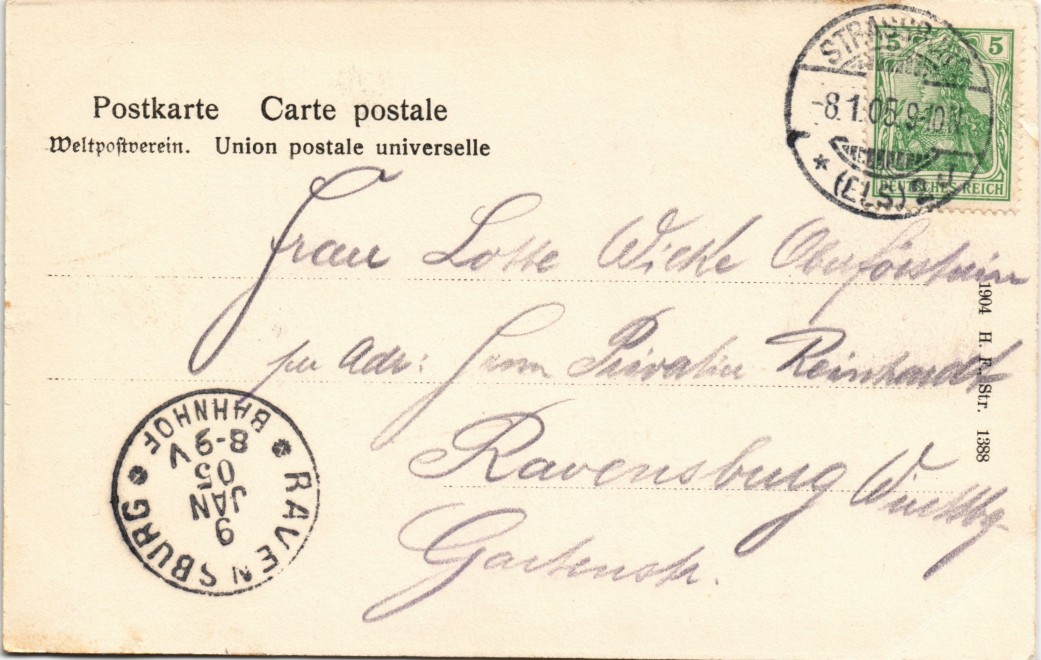 Postkarte Carte postale
Weltpostverein. Union postale universelle
5 5
DEUTSCHES REICH
STRASSBURG
-8.1.05.9-10
* (ELS) 2
Frau Lotte Wicke Oberförsterin
per Adr: Herrn Privatier Reinhardt
Ravensburg Württbg
Gartenstr.
1904 H. F., Str. 1388
RAVENSBURG
BAHNHOF
9
JAN
05
8-9 V